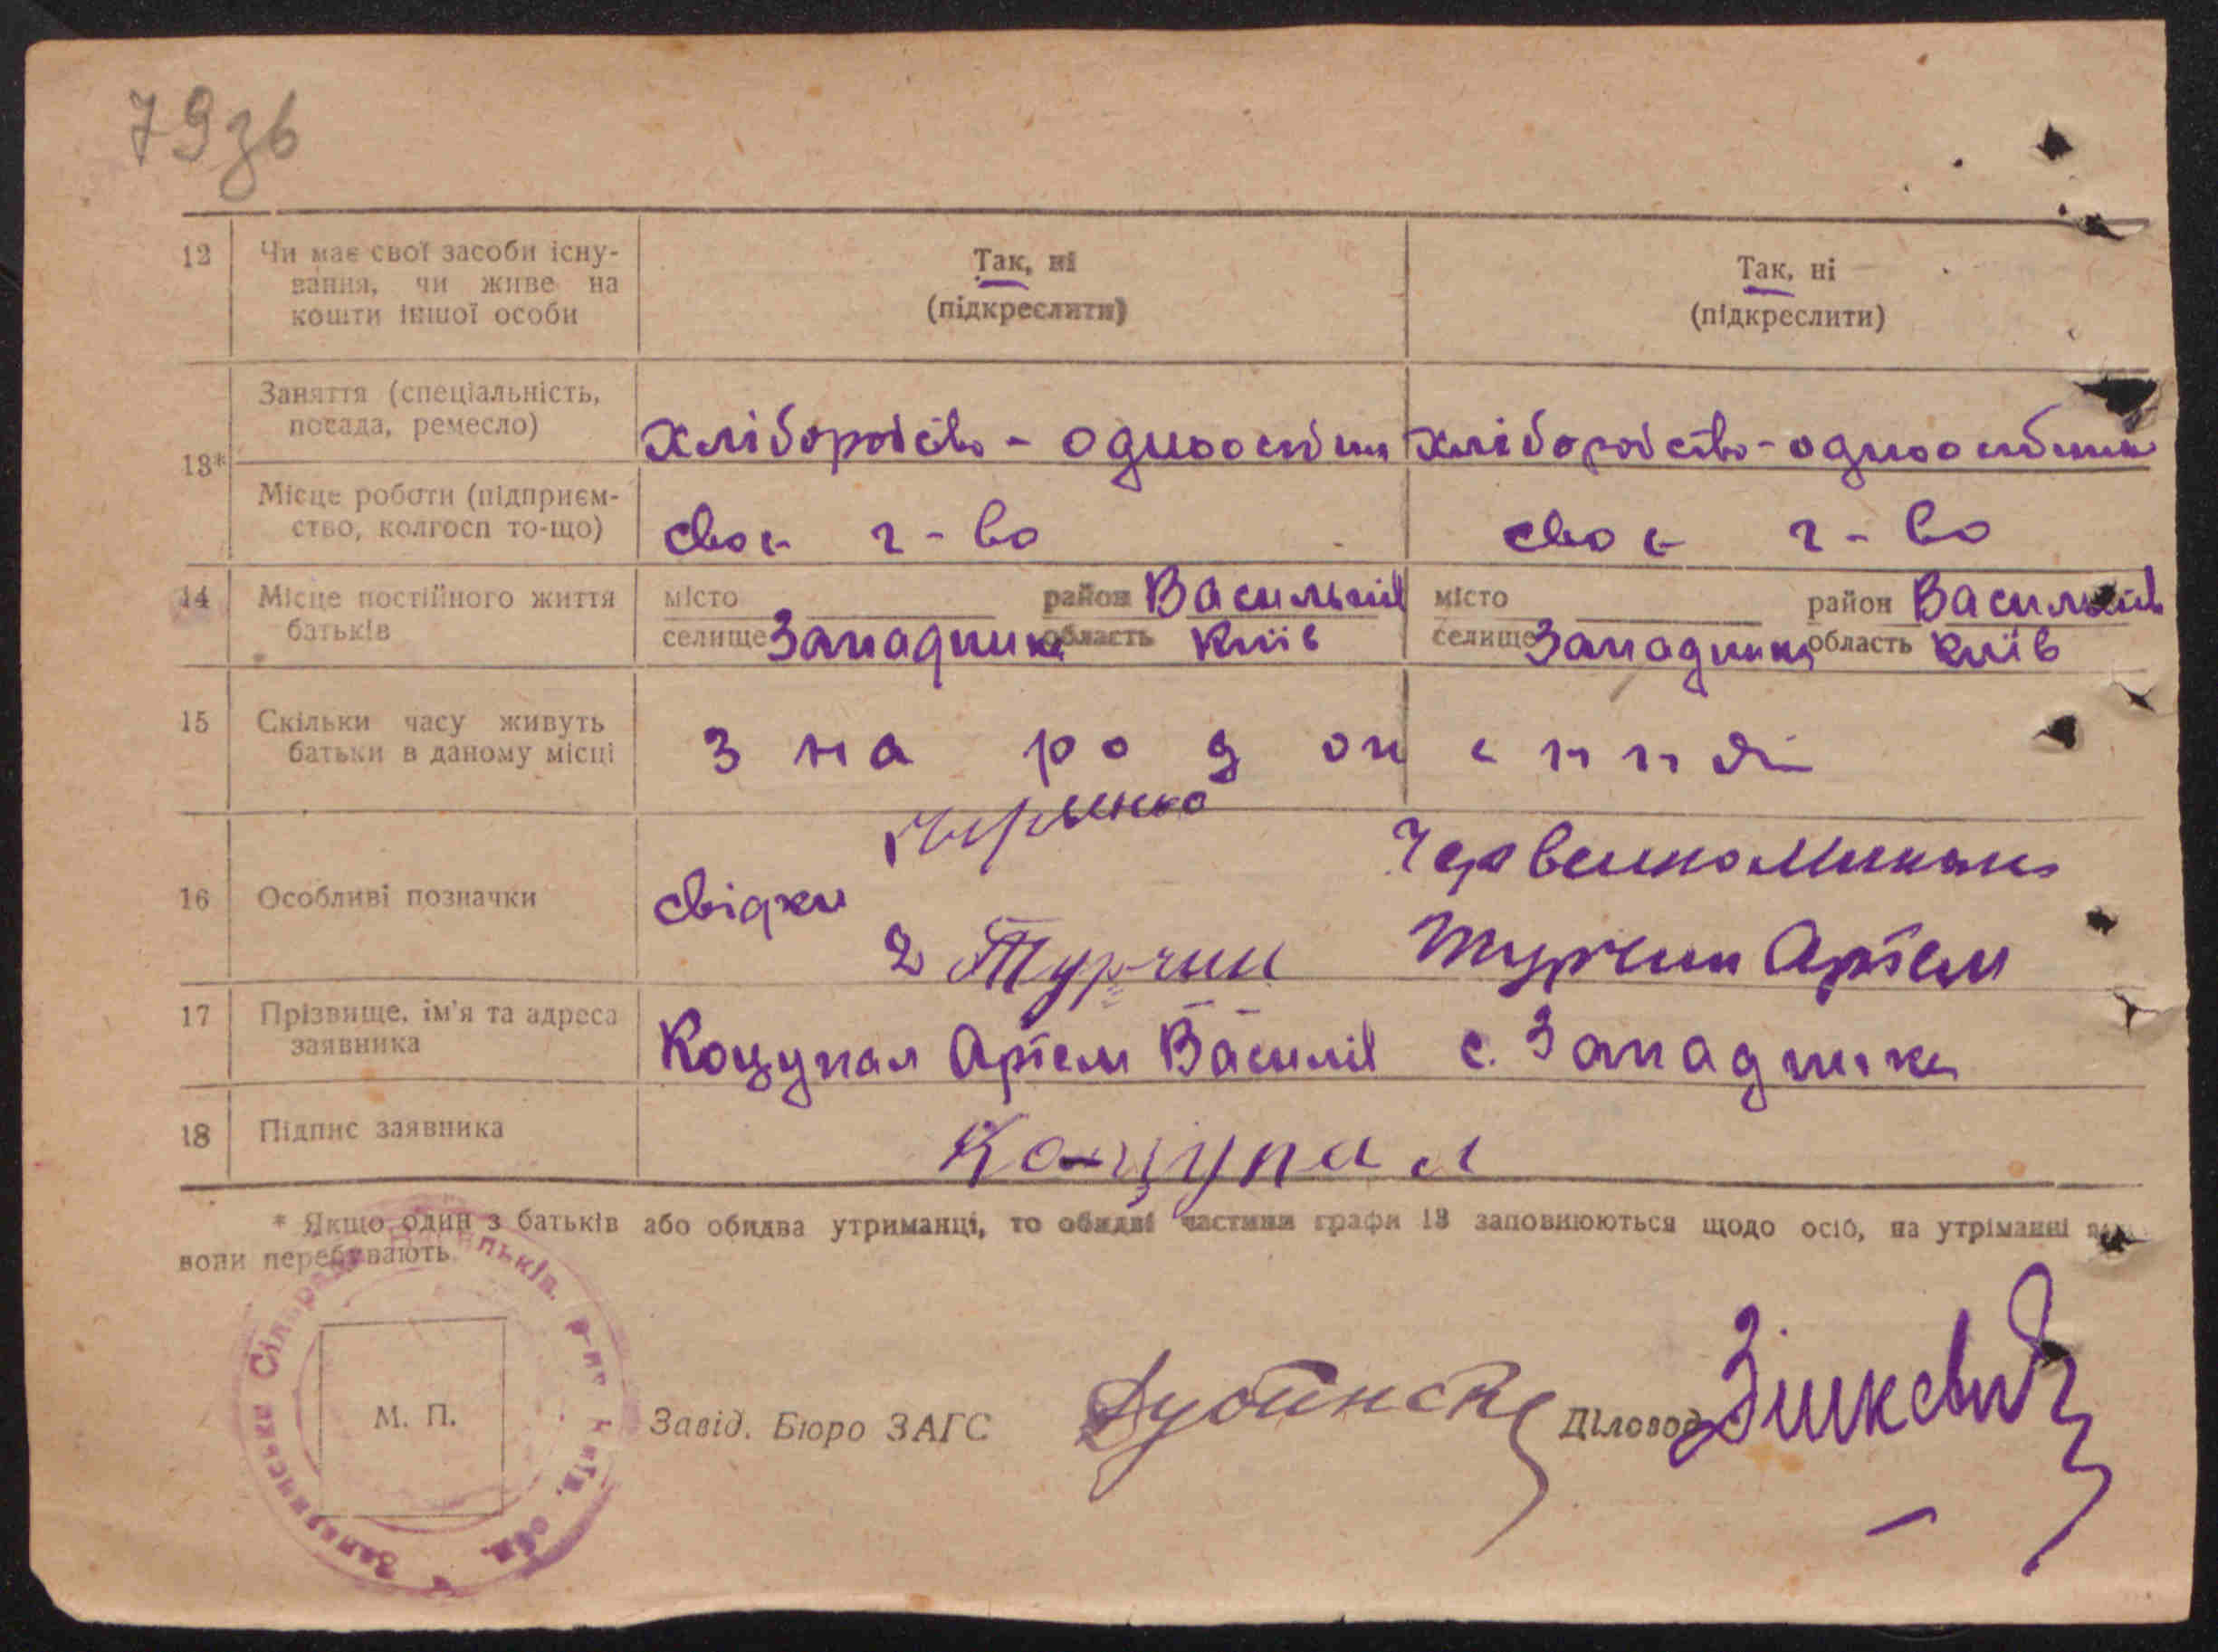 79зв
12 Чи має свої засоби існу- Так, ні Так, ні
вання, чи живе на (підкреслити) (підкреслити)
кошти іншої особи
Заняття (спеціальність,
посада, ремесло) хліборобство - одноосібник хліборобство - одноосібник
13*
Місце роботи (підприєм-
ство, колгосп то-що) своє г-во своє г-во
14 Місце постійного життя місто район Васильків місто район Васильків
батьків селище Западинка область Київ селище Западинка область Київ
15 Скільки часу живуть
батьки в даному місці з народження
Червенко Микола
16 Особливі позначки свідки
2 Турчин Турчин Артем
17 Прізвище, ім'я та адреса
заявника Коцупал Артем Василів с. Западинка
18 Підпис заявника Коцупал
* Якщо один з батьків або обидва утриманці, то обидві частини графи 13 заповнюються щодо осіб, на утріманні
вони перебувають.
Западинська Сільрада Васильків. р-ну Київ. обл.
М. П. Завід. Бюро ЗАГС Діловод Зінкевич